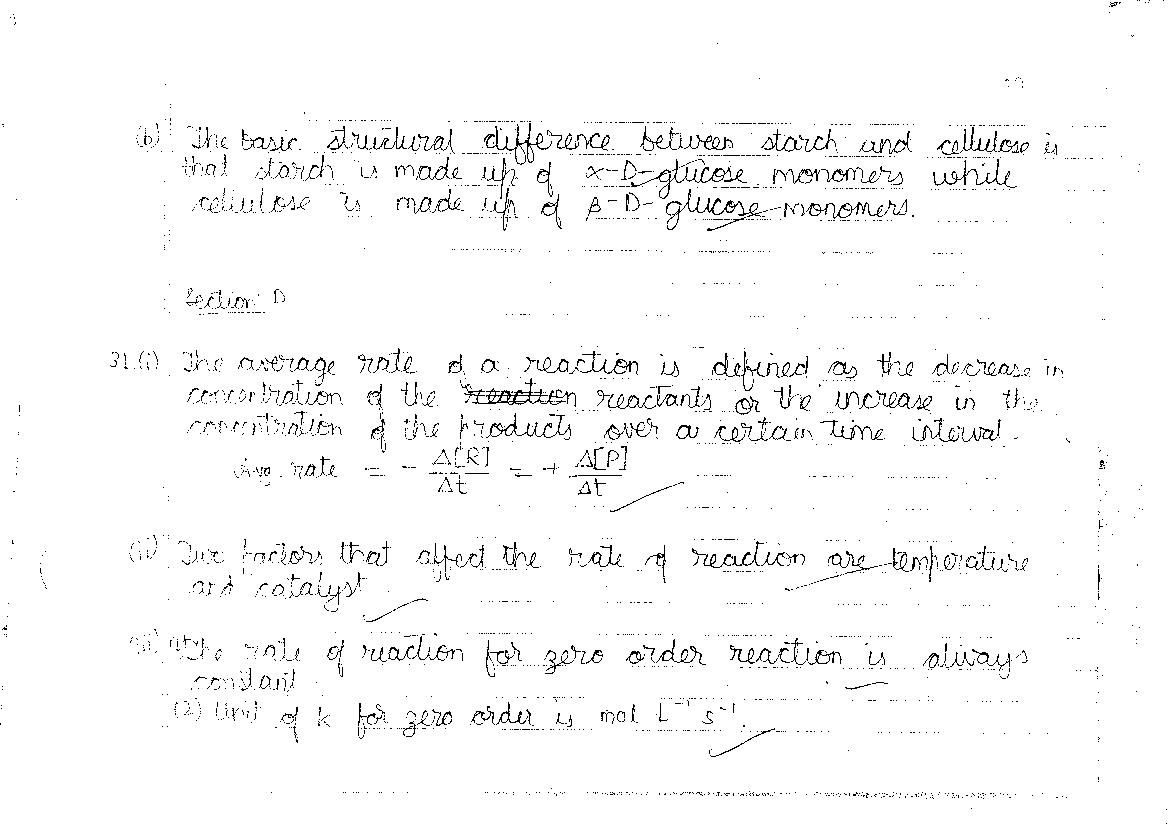 (b) The basic structural difference between starch and cellulose is
that starch is made up of α-D-glucose monomers while
cellulose is made up of β-D-glucose monomers.
Section D
31.(i) The average rate of a reaction is defined as the decrease in
concentration of the reaction reactants or the increase in the
concentration of the products over a certain time interval.
Avg. rate = - Δ[R]/Δt = + Δ[P]/Δt
(ii) Two factors that affect the rate of reaction are temperature
and catalyst
(iii) The rate of reaction for zero order reaction is always
constant.
(2) Unit of k for zero order is mol L⁻¹ s⁻¹.